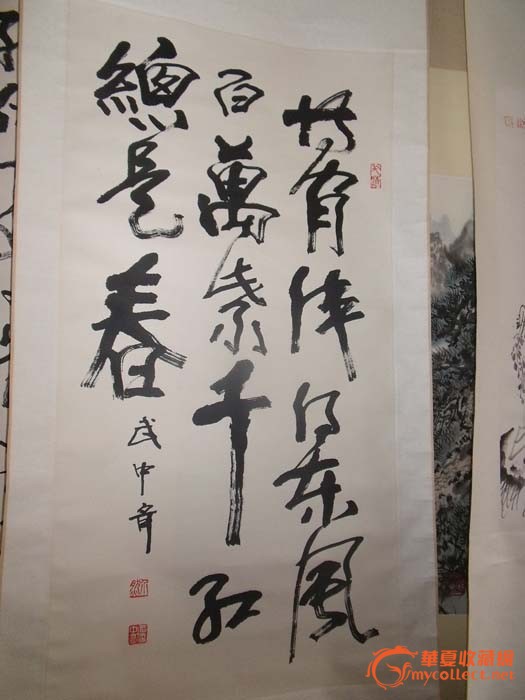 等閒識得東風
面萬紫千紅
總是春
武中奇
華夏收藏網
mycollect.net